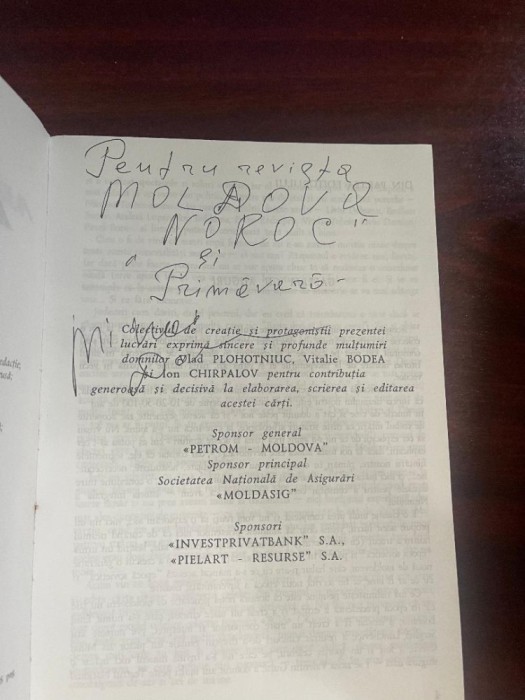 Pentru revista
MOLDOVA
NOROC"
și
Primăvară -
Colectivul de creație și protagoniștii prezentei
lucrări exprimă sincere și profunde mulțumiri
domnilor Vlad PLOHOTNIUC, Vitalie BODEA
și Ion CHIRPALOV pentru contribuția
generoasă și decisivă la elaborarea, scrierea și editarea
acestei cărți.
Sponsor general
«PETROM - MOLDOVA”
Sponsor principal
Societatea Națională de Asigurări
«MOLDASIG”
Sponsori
«INVESTPRIVATBANK” S.A.,
«PIELART - RESURSE” S.A.